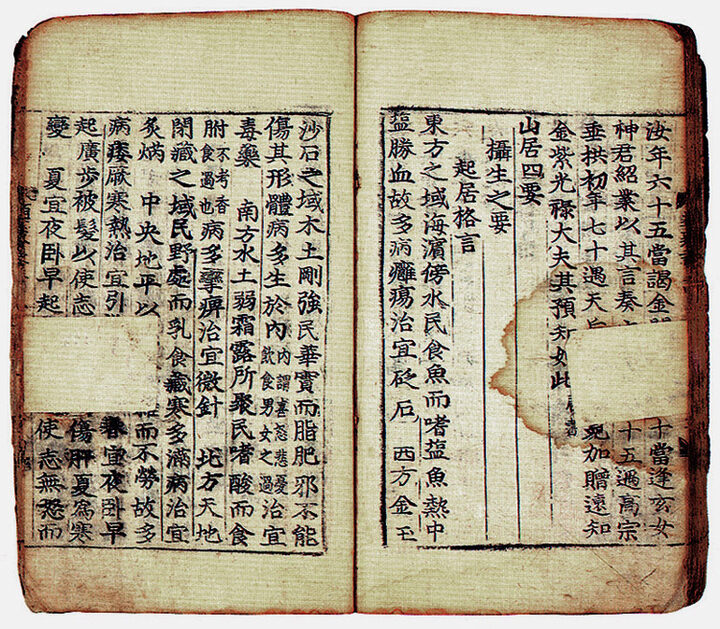 汝年六十五當謁金 十當逢玄女
神君紹業以其言奏 十五遇高宗
垂拱初年七十遇天 死加贈遠知
金紫光祿大夫其預知如此
山居四要
攝生之要
起居格言
東方之域海濱傍水民食魚而嗜塩魚熱中
塩勝血故多病癰瘍治宜砭石 西方金玉
沙石之域水土剛強民華實而脂肥邪不能
傷其形體病多生於內 內謂喜怒悲憂飲食男女之過 治宜
毒藥 南方水土弱霜露所聚民嗜酸而食
胕 不考香食過也 病多攣痹治宜微針 北方天地
閉藏之域民野處而乳食藏寒多滿病治宜
灸焫 中央地平以 而不勞故多
病痿厥寒熱治宜引 春宜夜卧早
起廣步被髮以使志 傷肝夏為寒
變 夏宜夜卧早起 使志無怒而